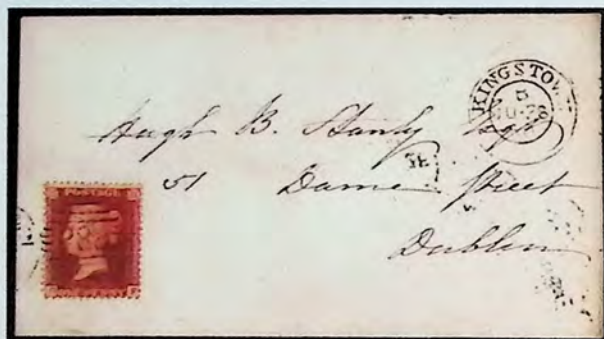 KINGSTOWN
5
Hugh B. Stanly Esq
51 Dame Street
Dublin
POSTAGE